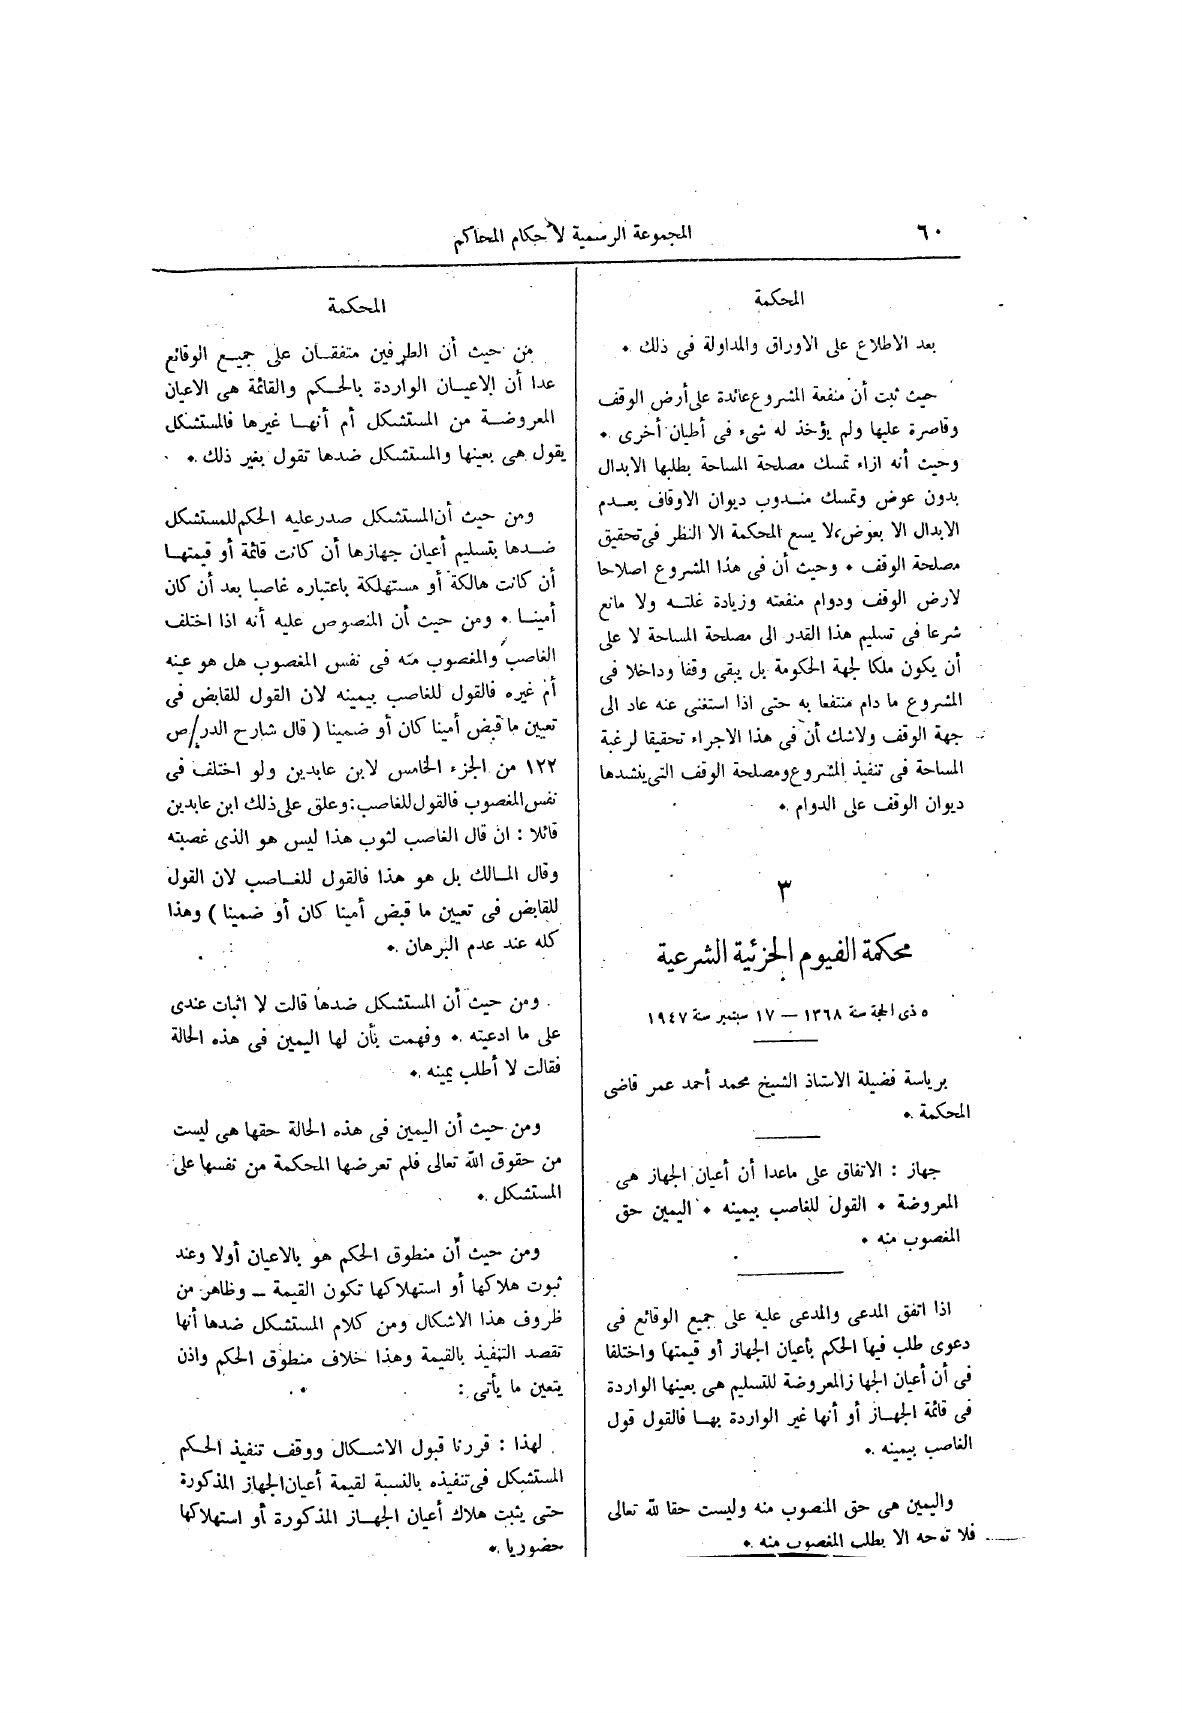 ٦٠
المجموعة الرسمية لأحكام المحاكم
المحكمة
بعد الاطلاع على الاوراق والمداولة فى ذلك .
حيث ثبت أن منفعة المشروع عائدة على أرض الوقف
وقاصرة عليها ولم يؤخذ له شىء فى أطيان أخرى .
وحيث أنه ازاء تمسك مصلحة المساحة بطلبها الابدال
بدون عوض وتمسك مندوب ديوان الاوقاف بعدم
الابدال الا بعوض، لا يسع المحكمة الا النظر فى تحقيق
مصلحة الوقف . وحيث أن فى هذا المشروع اصلاحا
لارض الوقف ودوام منفعته وزيادة غلته ولا مانع
شرعا فى تسليم هذا القدر الى مصلحة المساحة لا على
أن يكون ملكا لجهة الحكومة بل يبقى وقفا وداخلا فى
المشروع ما دام منتفعا به حتى اذا استغنى عنه عاد الى
جهة الوقف ولاشك أن فى هذا الاجراء تحقيقا لرغبة
المساحة فى تنفيذ المشروع ومصلحة الوقف التى ينشدها
ديوان الوقف على الدوام .
٣
محكمة الفيوم الجزئية الشرعية
٥ ذى الحجة سنة ١٣٦٨ — ١٧ سبتمبر سنة ١٩٤٧
برياسة فضيلة الاستاذ الشيخ محمد أحمد عمر قاضى
المحكمة .
جهاز : الاتفاق على ماعدا أن أعيان الجهاز هى
المعروضة . القول للغاصب بيمينه . اليمين حق
المغصوب منه .
اذا اتفق المدعى والمدعى عليه على جميع الوقائع فى
دعوى طلب فيها الحكم بأعيان الجهاز أو قيمتها واختلفا
فى أن أعيان الجهاز المعروضة للتسليم هى بعينها الواردة
فى قائمة الجهاز أو أنها غير الواردة بها فالقول قول
الغاصب بيمينه .
واليمين هى حق المنصوب منه وليست حقا لله تعالى
فلا توجه الا بطلب المغصوب منه .
المحكمة
من حيث أن الطرفين متفقان على جميع الوقائع
عدا أن الاعيان الواردة بالحكم والقائمة هى الاعيان
المعروضة من المستشكل أم أنها غيرها فالمستشكل
يقول هى بعينها والمستشكل ضدها تقول بغير ذلك .
ومن حيث أن المستشكل صدر عليه الحكم للمستشكل
ضدها بتسليم أعيان جهازها أن كانت قائمة أو قيمتها
أن كانت هالكة أو مستهلكة باعتباره غاصبا بعد أن كان
أمينا . ومن حيث أن المنصوص عليه أنه اذا اختلف
الغاصب والمغصوب منه فى نفس المغصوب هل هو عينه
أم غيره فالقول للغاصب بيمينه لان القول للقابض فى
تعيين ما قبض أمينا كان أو ضمينا ( قال شارح الدر/ص
١٢٢ من الجزء الخامس لابن عابدين ولو اختلف فى
نفس المغصوب فالقول للغاصب : وعلق على ذلك ابن عابدين
قائلا : ان قال الغاصب لثوب هذا ليس هو الذى غصبته
وقال المالك بل هو هذا فالقول للغاصب لان القول
للقابض فى تعيين ما قبض أمينا كان أو ضمينا ) وهذا
كله عند عدم البرهان .
ومن حيث أن المستشكل ضدها قالت لا اثبات عندى
على ما ادعيته . وفهمت بأن لها اليمين فى هذه الحالة
فقالت لا أطلب يمينه .
ومن حيث أن اليمين فى هذه الحالة حقها هى ليست
من حقوق الله تعالى فلم تعرضها المحكمة من نفسها على
المستشكل .
ومن حيث أن منطوق الحكم هو بالاعيان أولا وعند
ثبوت هلاكها أو استهلاكها تكون القيمة ــ وظاهر من
ظروف هذا الاشكال ومن كلام المستشكل ضدها أنها
تقصد التنفيذ بالقيمة وهذا خلاف منطوق الحكم واذن
يتعين ما يأتى :
لهذا : قررنا قبول الاشكال ووقف تنفيذ الحكم
المستشكل فى تنفيذه بالنسبة لقيمة أعيان الجهاز المذكورة
حتى يثبت هلاك أعيان الجهاز المذكورة أو استهلاكها
حضوريا .